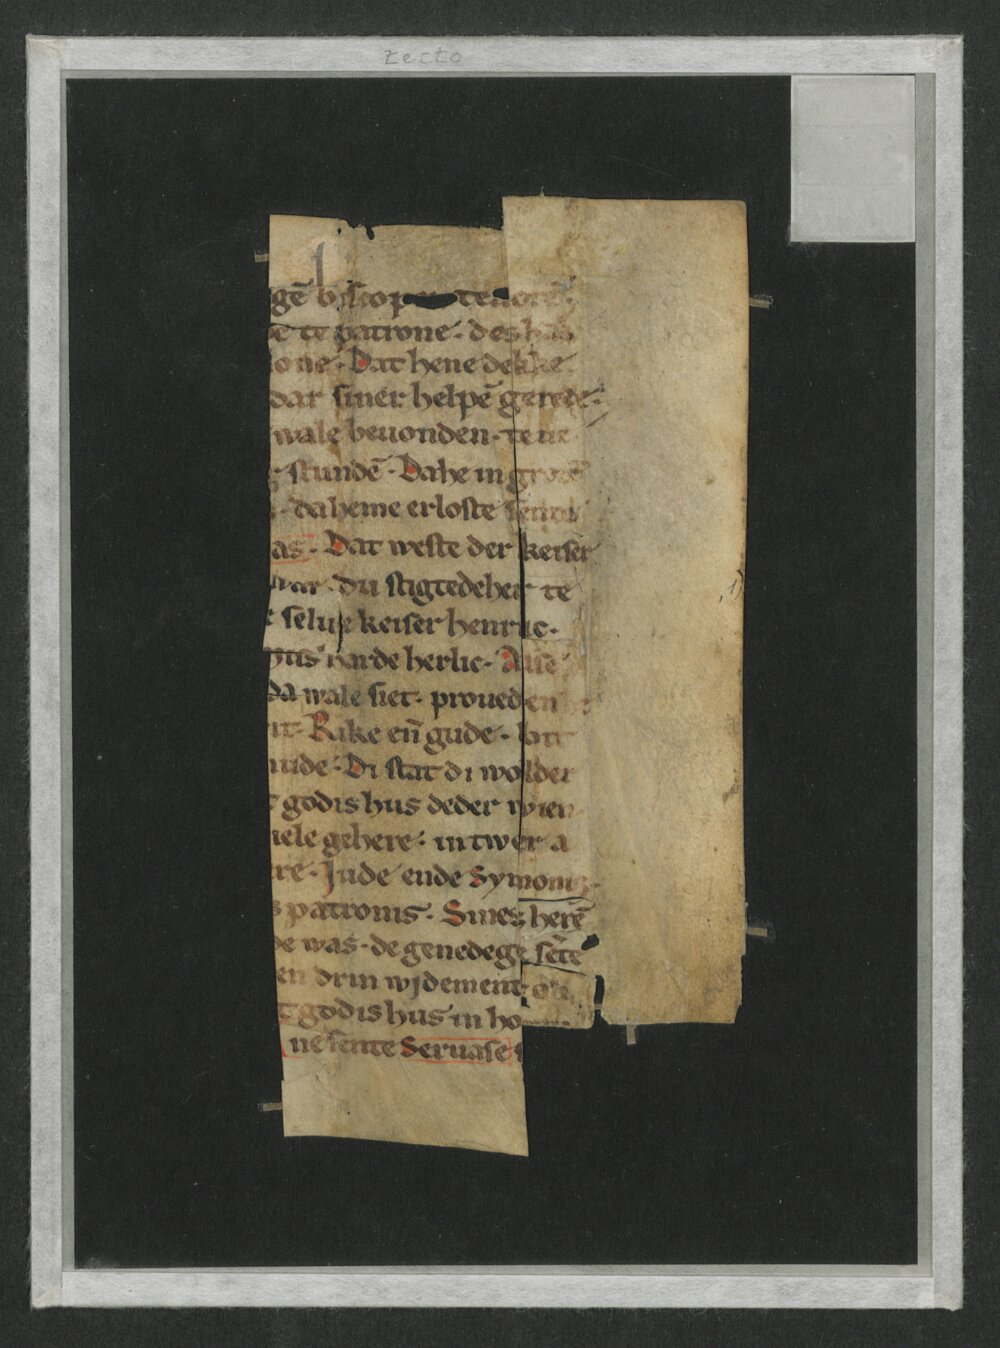 recto
gē biscop te
te patrone · des
one · Dat hene dekke
dar siner helpē gerede ·
wale beuonden · te ne
stundē · Dahe in grotē
daheme erloste sente
as · Dat weste der keiser
war · du stigtedeher te
selue keiser henric ·
hus harde herlic · Alse
da wale siet · proueden
it · Rike en̄ gude ·
mude · Di stat di wolder
t godis hus deder wien
iele gehere · in twer a
re · Jude ende Symonis ·
s patronis · Sines herē
de was · de genedege sēte
en drin widement
t godis hus in ho
ne sente Seruase